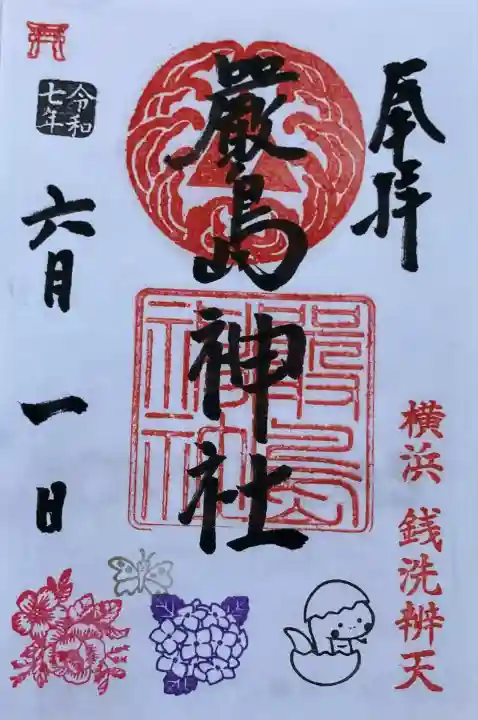 奉拝
横浜 銭洗辨天
嚴島神社
嚴島
神社
令和
七年
六月
一日